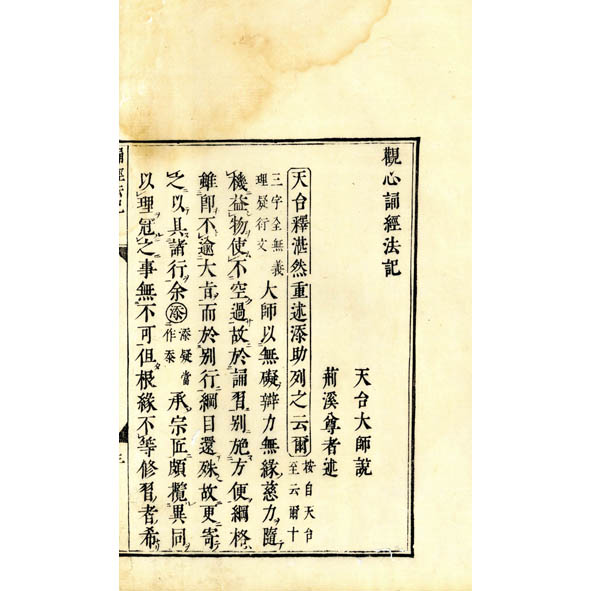 觀心誦經法記
天台大師說
荊溪尊者述
天台釋湛然重述添助列之云爾按自天台至云爾十
三字全無義理疑衍文大師以無礙辯力無緣慈力隨
機益物使不空過故於誦習別施方便綱格
雖卽不逾大旨而於別行綱目還殊故更寄
之以具諸行余添添疑當作忝承宗匠頗攬異同
以理冠之事無不可但根緣不等修習者希